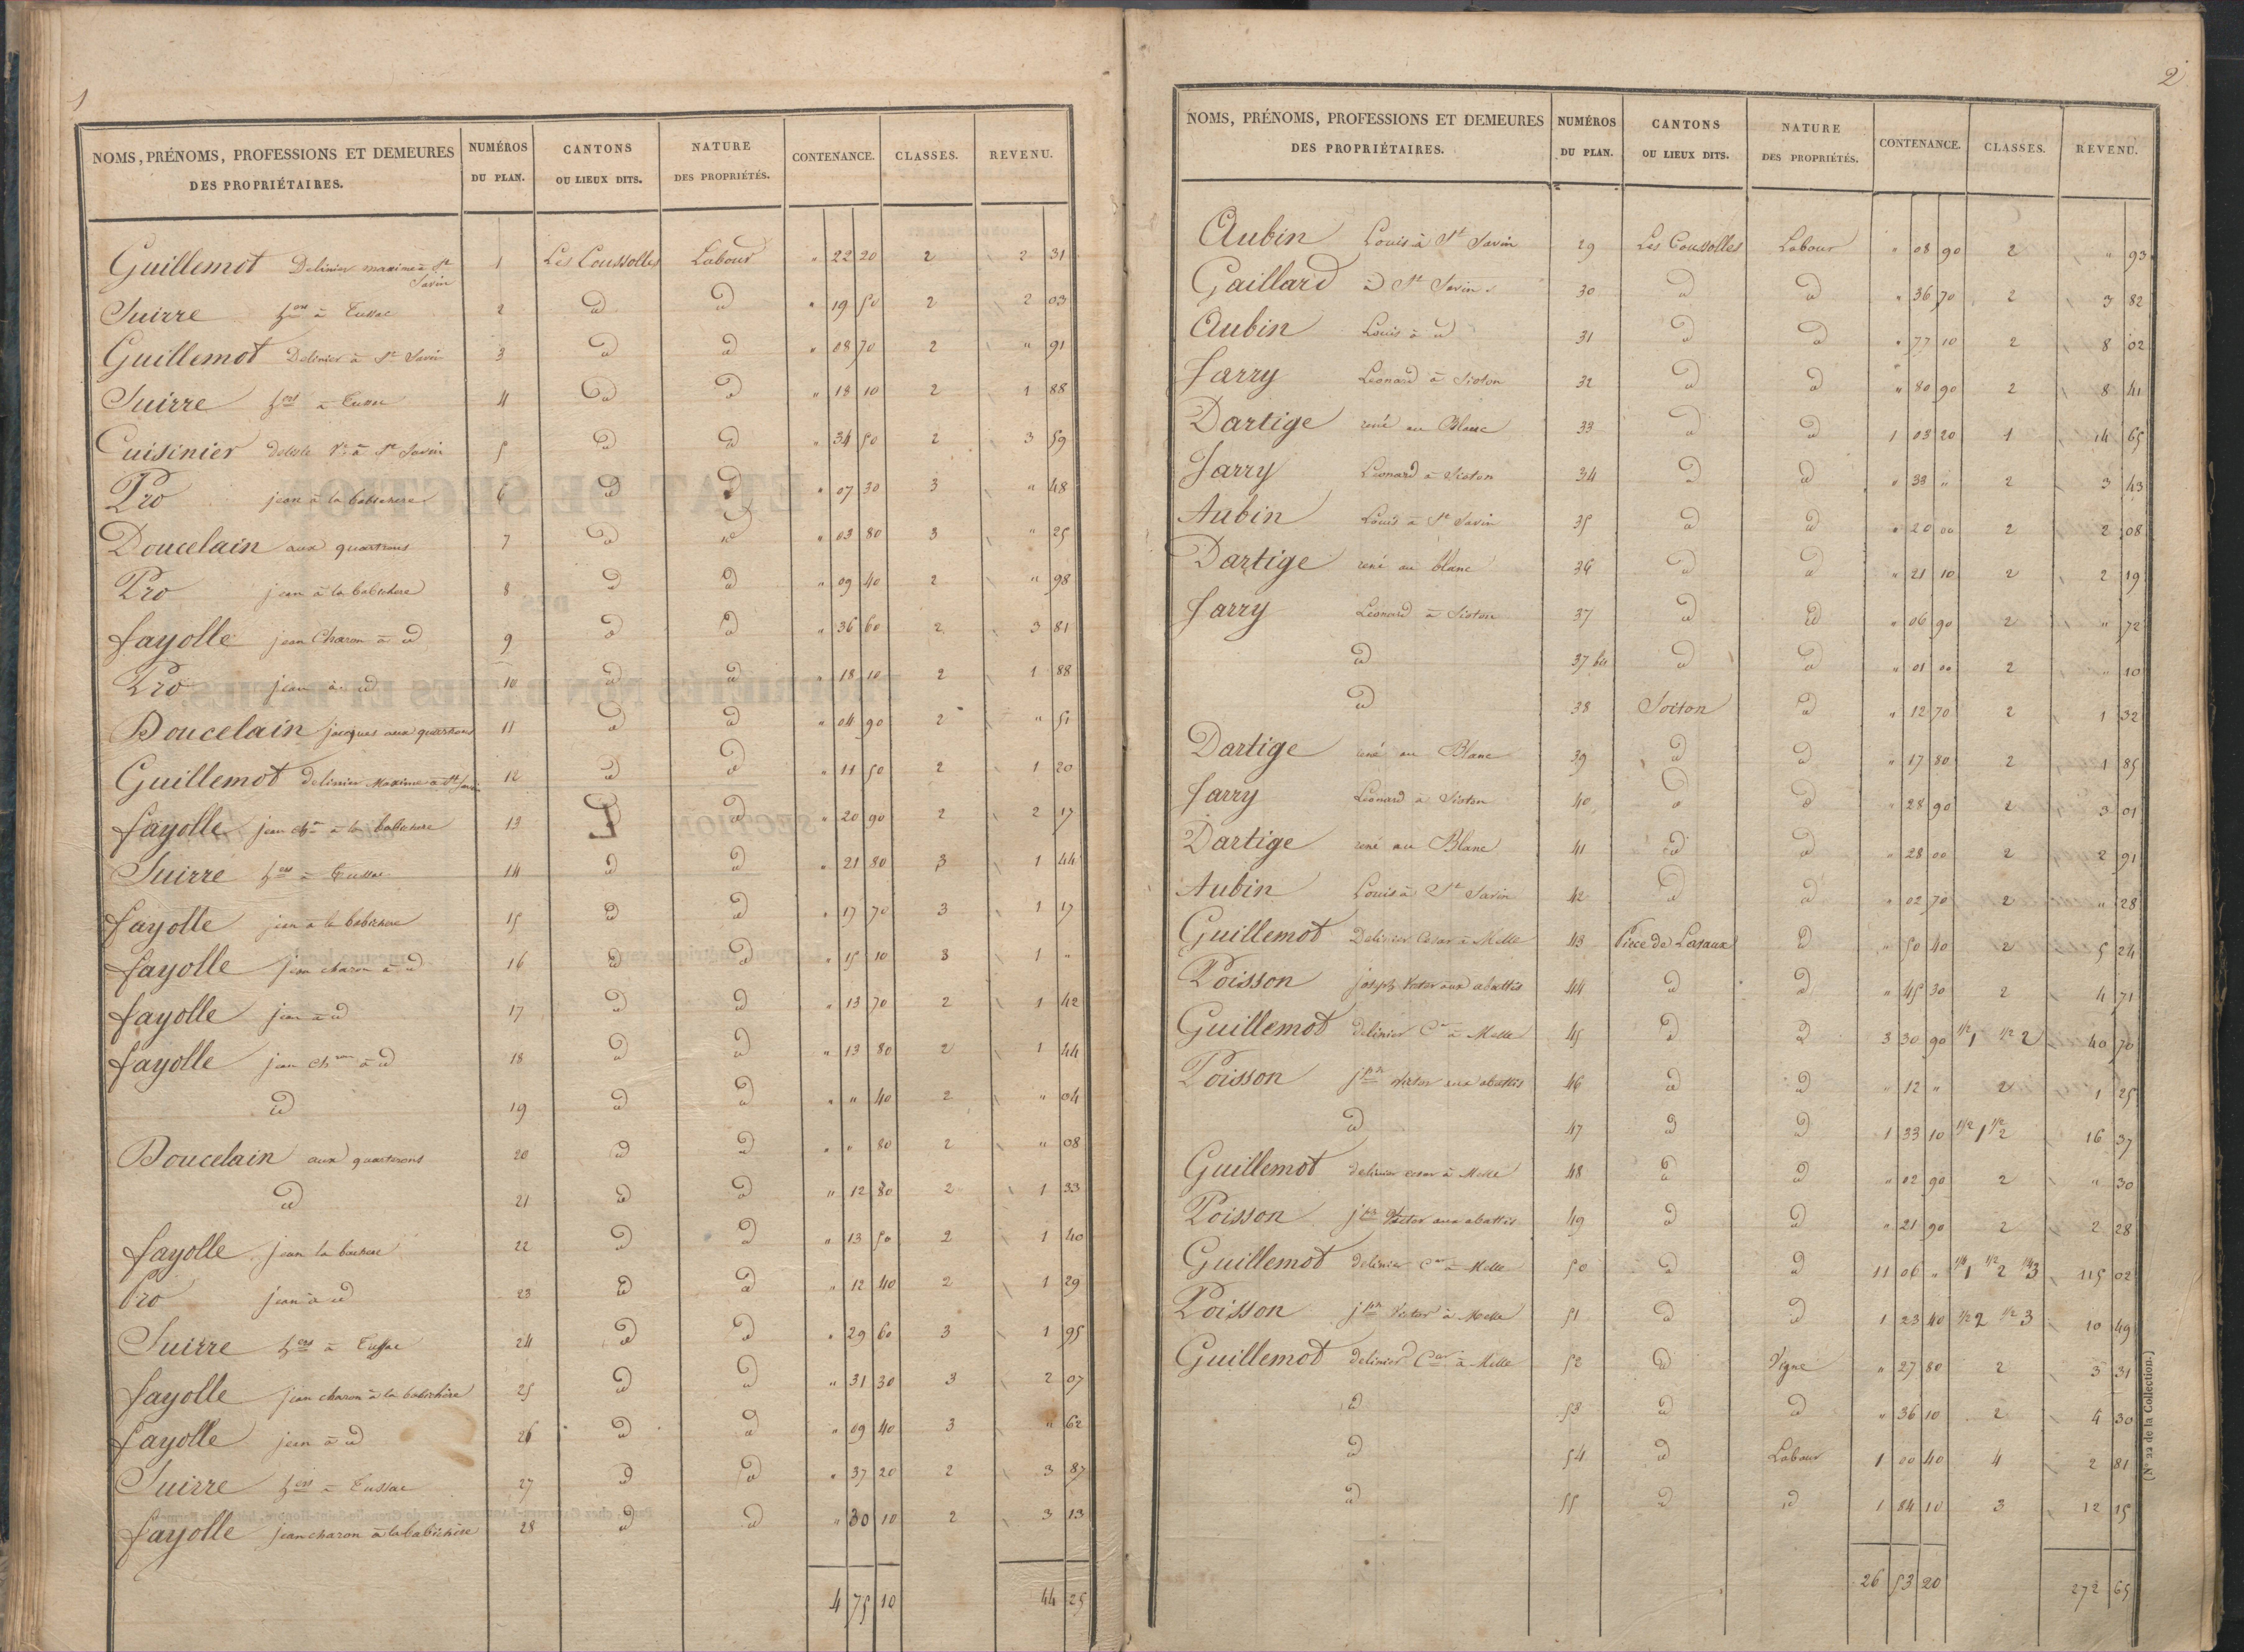 1
NOMS, PRÉNOMS, PROFESSIONS ET DEMEURES DES PROPRIÉTAIRES. NUMÉROS DU PLAN. CANTONS OU LIEUX DITS. NATURE DES PROPRIÉTÉS. CONTENANCE. CLASSES. REVENU.
Guillemot Delinier maxime à St Savin 1 Les Coussolles Labour " 22 20 2 2 31
Suirre hers à Tussac 2 d d " 19 50 2 2 03
Guillemot Delinier à St Savin 3 d d " 08 70 2 " 91
Suirre hers à Tussac 4 d d " 18 10 2 1 88
Cuisinier Ve à St Savin 5 d d " 34 50 2 3 59
Pro jean à la babichere 6 d d " 07 30 3 " 48
Doucelain aux quartrons 7 d d " 03 80 3 " 25
Pro jean à la babichere 8 d d " 09 40 2 " 98
fayolle jean Charon à d 9 d d " 36 60 2 3 81
Pro jean à d 10 d d " 18 10 2 1 88
Doucelain jacques aux quartrons 11 d d " 04 90 2 " 51
Guillemot delinier Maxime à St Savin 12 d d " 11 50 2 1 20
fayolle jean chon à la babichere 13 d d " 20 90 2 2 17
Suirre hers à Tussac 14 d d " 21 80 3 1 44
fayolle jean à la babichere 15 d d " 17 70 3 1 17
fayolle jean charon à d 16 d d " 15 10 3 1 "
fayolle jean à d 17 d d " 13 70 2 1 42
fayolle jean chon à d 18 d d " 13 80 2 1 44
d 19 d d " " 40 2 " 04
Doucelain aux quarterons 20 d d " " 80 2 " 08
d 21 d d " 12 80 2 1 33
fayolle jean la 22 d d " 13 50 2 1 40
Pro jean à d 23 d d " 12 40 2 1 29
Suirre hers à Tussac 24 d d " 29 60 3 1 95
fayolle jean charon à la babichère 25 d d " 31 30 3 2 07
fayolle jean à d 26 d d " 09 40 3 " 62
Suirre hers à Tussac 27 d d " 37 20 2 3 87
fayolle jean charon à la babichère 28 d d " 30 10 2 3 13
4 75 10 44 25
2
NOMS, PRÉNOMS, PROFESSIONS ET DEMEURES DES PROPRIÉTAIRES. NUMÉROS DU PLAN. CANTONS OU LIEUX DITS. NATURE DES PROPRIÉTÉS. CONTENANCE. CLASSES. REVENU.
Aubin Louis à St Savin 29 Les Coussolles Labour " 08 90 2 " 93
Gaillard à St Savin 30 d d " 36 70 2 3 82
Aubin Louis à d 31 d d " 77 10 2 8 02
Jarry Leonard à Sioton 32 d d " 80 90 2 8 41
Dartige rené au Blanc 33 d d 1 03 20 1 14 65
Jarry Leonard à Sioton 34 d d " 33 " 2 3 43
Aubin Louis à St Savin 35 d d " 20 00 2 2 08
Dartige rené au blanc 36 d d " 21 10 2 2 19
Jarry Léonard à Sioton 37 d d " 06 90 2 " 72
d 37 bis d d " 01 00 2 " 10
d 38 Soiton d " 12 70 2 1 32
Dartige rené au Blanc 39 d d " 17 80 2 1 85
Jarry Léonard à Sioton 40 d d " 28 90 2 3 01
Dartige rené au Blanc 41 d d " 28 00 2 2 91
Aubin Louis à St Savin 42 d d " 02 70 2 " 28
Guillemot Delinier Cesar à Melle 43 Pièce de Lasaux d " 50 40 2 5 24
Poisson joseph Victor aux abattis 44 d d " 45 30 2 4 71
Guillemot delinier Car à Melle 45 d d 3 30 90 1/2 1 1/2 2 40 70
Poisson jph victor aux abattis 46 d d " 12 " 2 1 25
d 47 d d 1 33 10 1/2 1 1/2 2 16 37
Guillemot delinier cesar à Melle 48 d d " 02 90 2 " 30
Poisson jph Victor aux abattis 49 d d " 21 90 2 2 28
Guillemot delinier Car à Melle 50 d d 11 06 " 1/4 1 1/2 2 1/4 3 115 02
Poisson jph Victor à Melle 51 d d 1 23 40 1/2 2 1/2 3 10 49
Guillemot delinier Car à Melle 52 d Vigne " 27 80 2 3 31
d 53 d d " 36 10 2 4 30
d 54 d Labour 1 00 40 4 2 81
d 55 d d 1 84 10 3 12 15
26 53 20 272 65
(N° 22 de la Collection.)